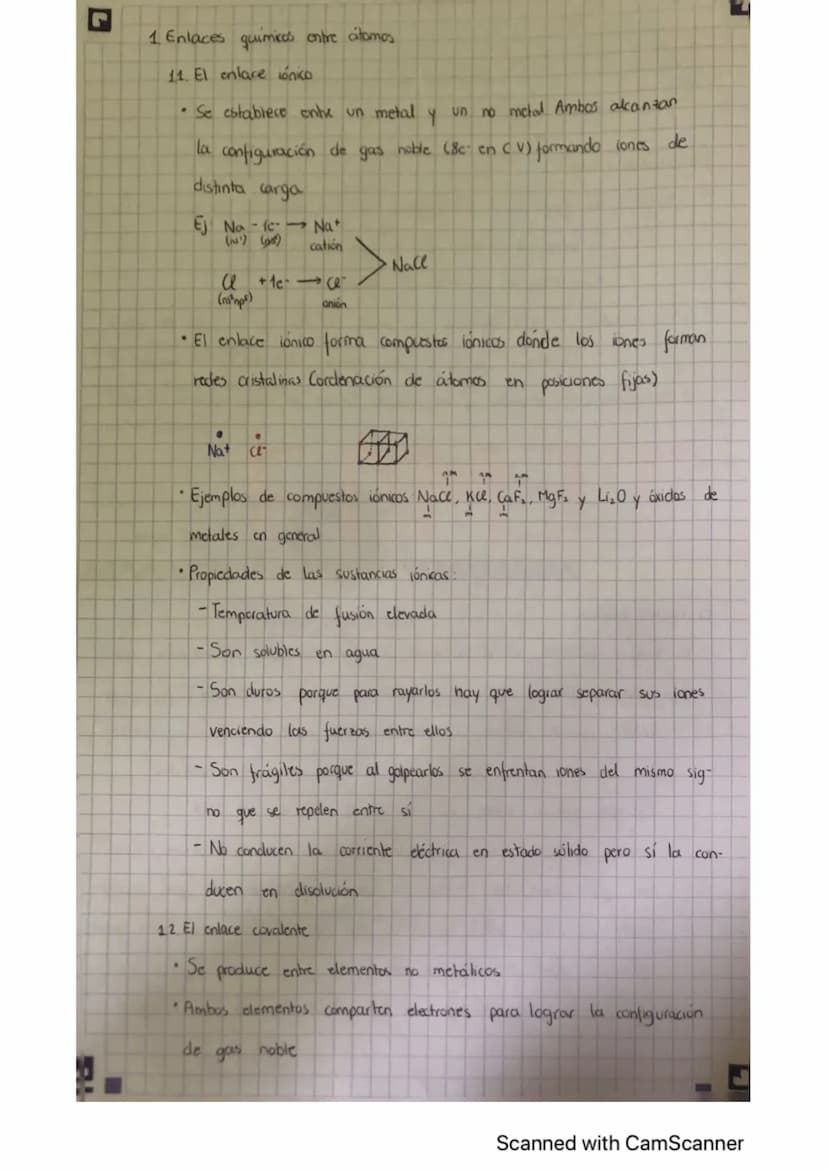 1. Enlaces químicos entre átomos
1.1. El enlace iónico
• Se establece entre un metal y un no metal. Ambos alcanzan
la configuración de gas noble (8e⁻ en C.V) formando iones de
distinta carga.
Ej: Na - 1e⁻ → Na⁺
(ns¹) catión
NaCl
Cl + 1e⁻ → Cl⁻
(ns²np⁵) anión
• El enlace iónico forma compuestos iónicos donde los iones forman
redes cristalinas (ordenación de átomos en posiciones fijas)
Na⁺ Cl⁻
• Ejemplos de compuestos iónicos NaCl, KCl, CaF₂, MgF₂ y Li₂O y óxidos de
metales en general
• Propiedades de las sustancias iónicas:
- Temperatura de fusión elevada
- Son solubles en agua
- Son duros porque para rayarlos hay que lograr separar sus iones
venciendo las fuerzas entre ellos
- Son frágiles porque al golpearlos se enfrentan iones del mismo sig-
no que se repelen entre sí
- No conducen la corriente eléctrica en estado sólido pero sí la con-
ducen en disolución
1.2. El enlace covalente
• Se produce entre elementos no metálicos
• Ambos elementos comparten electrones para lograr la configuración
de gas noble
Scanned with CamScanner